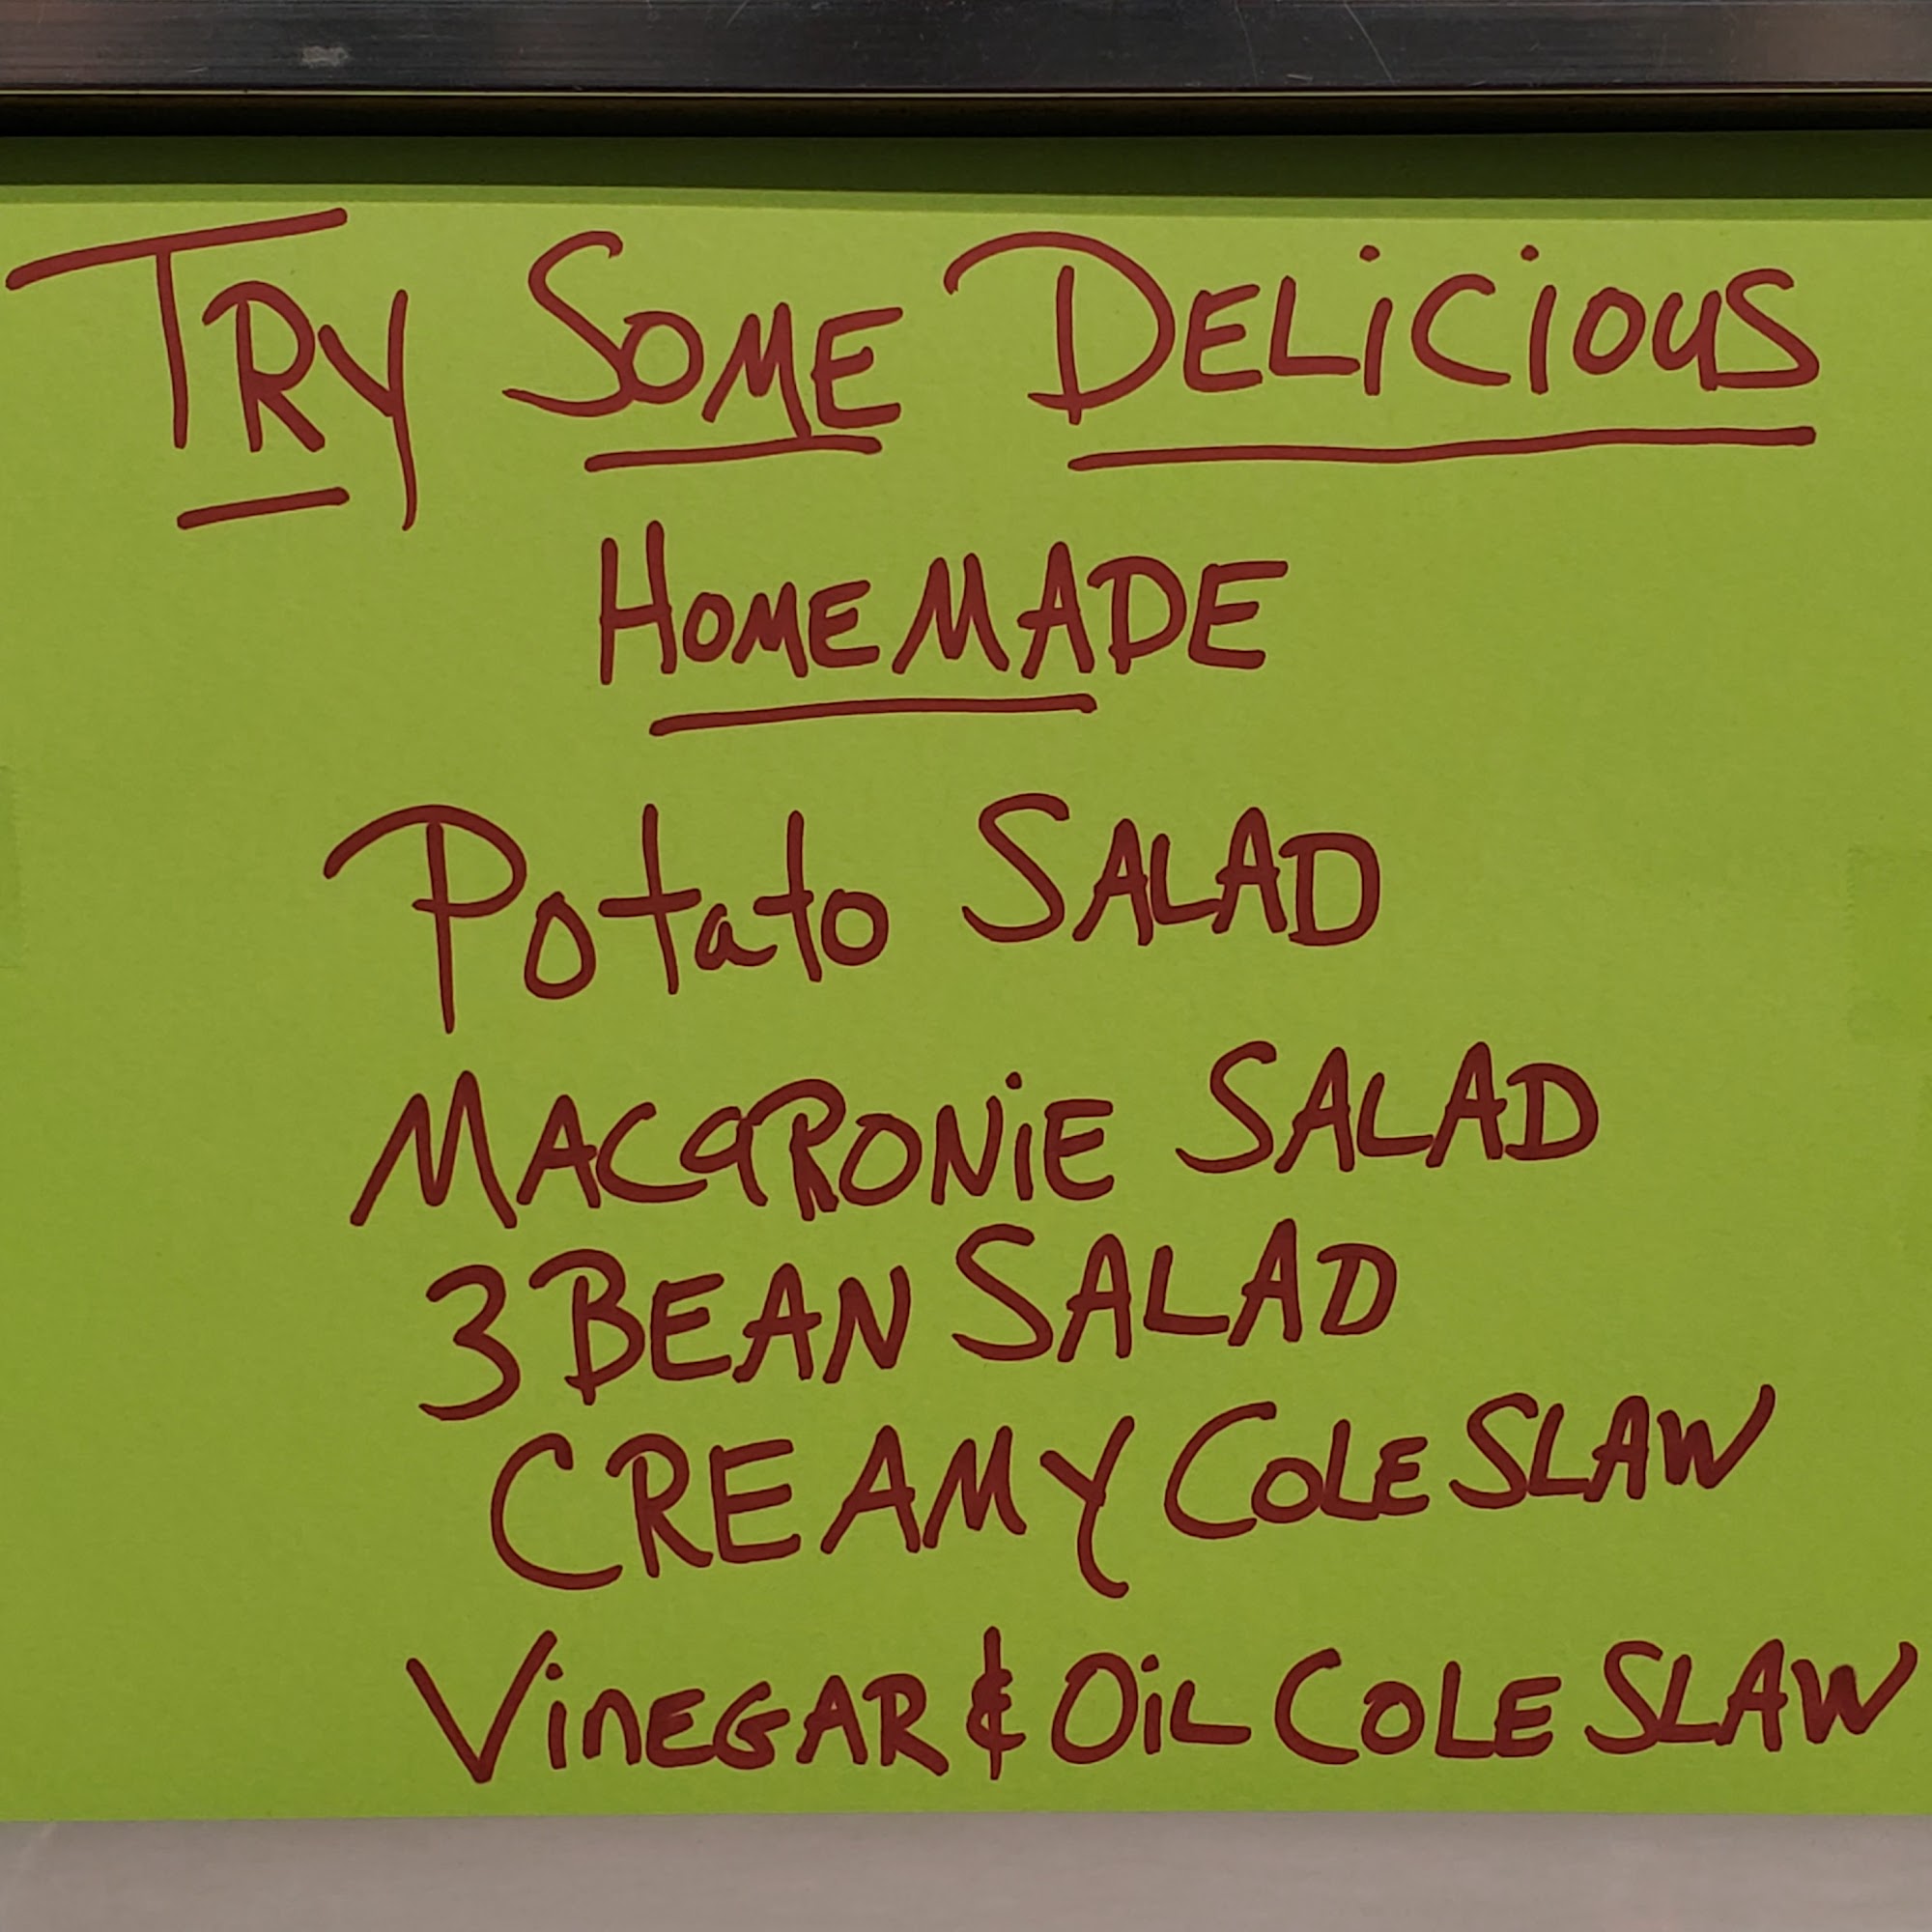 TRY SOME DELiCiOUS
HOMEMADE
Potato SALAD
MACaRONiE SALAD
3 BEAN SALAD
CREAMY COLE SLAW
ViNEGAR & OiL COLE SLAW